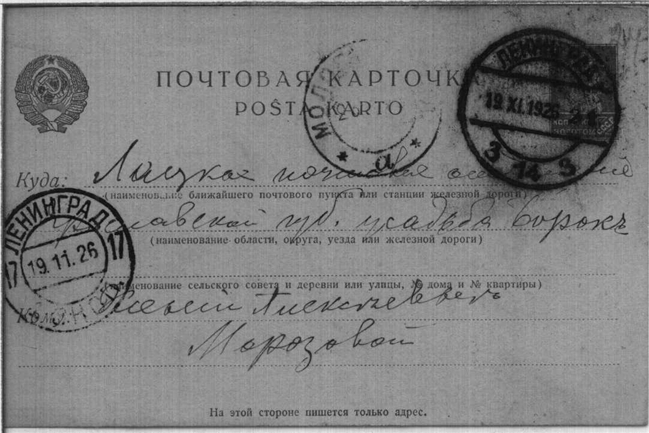 ПОЧТОВАЯ КАРТОЧКА
POŜTA KARTO
ЛЕНИНГРАД
19.XI.1926
3 14 3
МОЛ
* а *
Куда: Лацкое почтовое
(наименование ближайшего почтового пункта или станции железной дороги)
губ. усадьба Борокъ
(наименование области, округа, уезда или железной дороги)
ЛЕНИНГРАД
17 17
19.11.26
(наименование сельского совета и деревни или улицы, № дома и № квартиры)
Кому:
Морозовой
На этой стороне пишется только адрес.